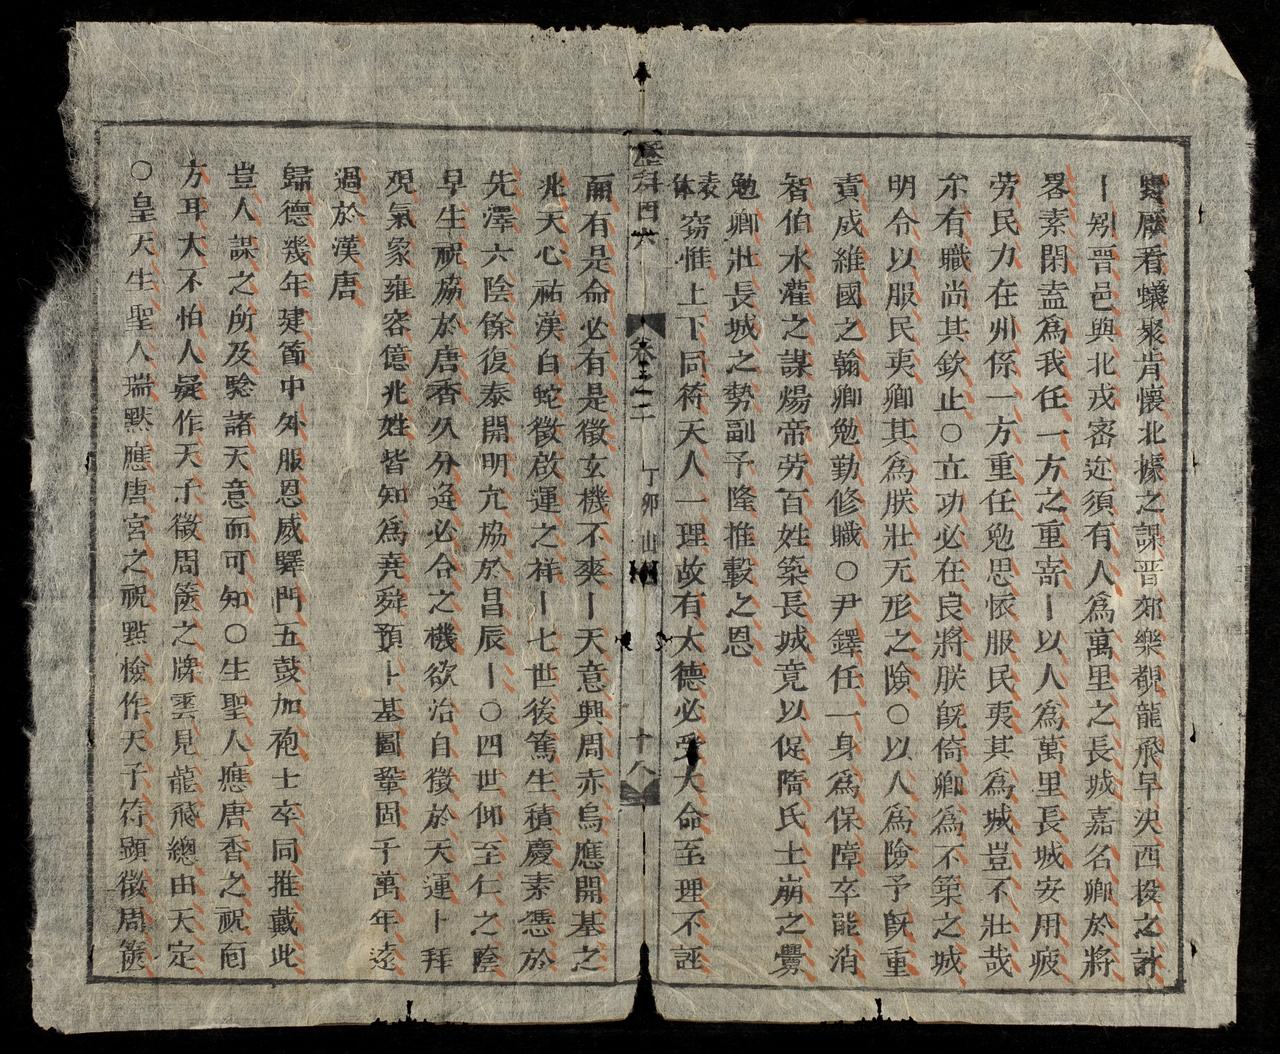 看蟻聚肯懷北據之謀晋郊樂覩龍飛早决西投之計
丨矧晋邑與北戎密迩須有人為萬里之長城嘉名卿於將
畧素閑盍為我任一方之重寄丨以人為萬里長城安用疲
劳民力在州係一方重任勉思懷服民夷其為城豈不壮哉
尒有職尚其欽止○立功必在良將朕既倚卿為不築之城
明令以服民夷卿其為朕壮无形之險○以人為險予既重
責成維國之翰卿勉勤修職○尹鐸任一身為保障卒能消
智伯水灌之謀煬帝劳百姓築長城竟以促隋氏土崩之釁
勉卿壮長城之勢副予隆推轂之恩
表体 窃惟上下同符天人一理故有大德必受大命至理不誣
暦科四六 卷之二 丁卯 山 十八
爾有是命必有是徵玄機不爽丨天意興周赤烏應開基之
兆天心祐漢白蛇徵啟運之祥丨七世後篤生積慶素憑於
先澤六陰餘復泰開明亢協於昌辰丨○四世仰至仁之陰
早生祝協於唐香久分逄必合之機欲治自徵於天運卜拜
覌氣象雍容億兆姓皆知為尭舜預卜基圖鞏固于萬年逺
過於漢唐
歸德幾年建節中外服恩威驛門五鼓加袍士卒同推戴此
豈人謀之所及騐諸天意而可知○生聖人應唐香之祝靣
方耳大不怕人疑作天子徵周篋之牌雲見龍飛總由天定
○皇天生聖人瑞默應唐宮之祝點檢作天子符顕徵周篋